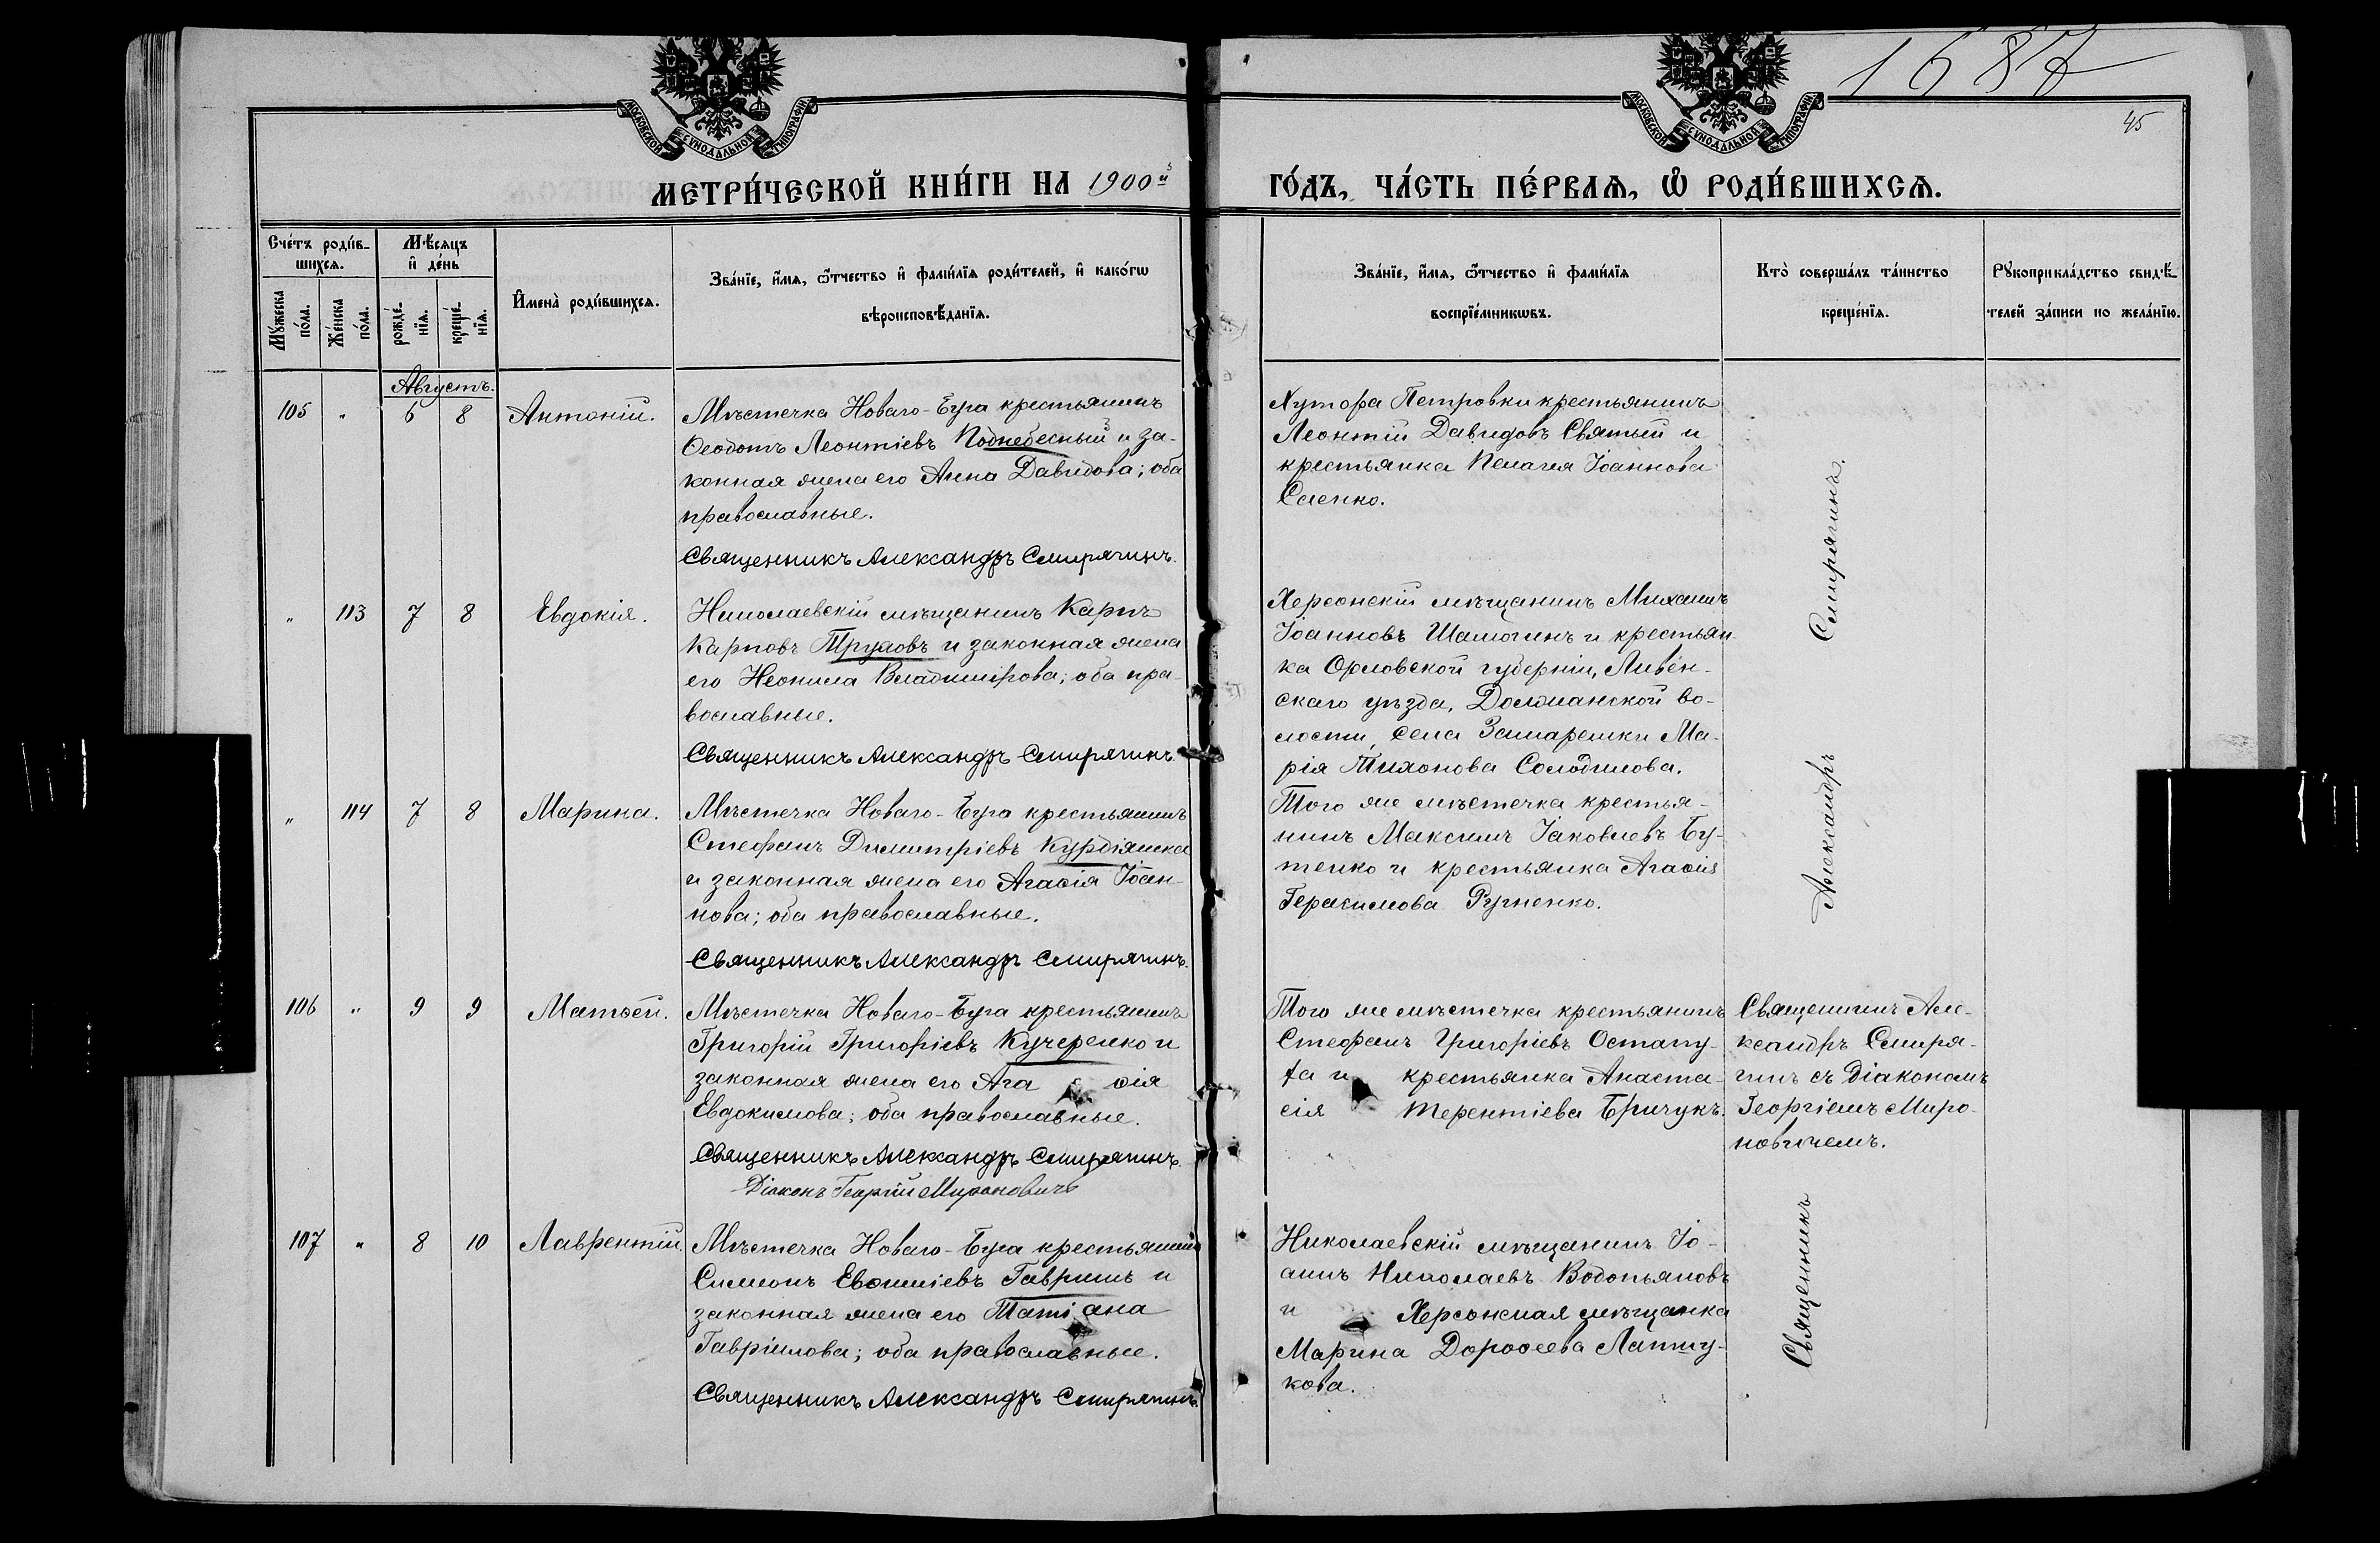 1687
45
МОСКОВСКОЙ СѴНОДАЛЬНОЙ ТИПОГРАФІИ
МОСКОВСКОЙ СѴНОДАЛЬНОЙ ТИПОГРАФІИ
МЕТРИ́ЧЕСКОЙ КНИ́ГИ НА 1900й ГО́ДЪ, ЧА́СТЬ ПЕ́РВАЯ, Ѡ РОДИ́ВШИХСЯ.
Сче́тъ роди́в-
шихся.
Мѣ́сяцъ
и де́нь
Мꙋ́жеска
по́ла.
Же́нска
по́ла.
рожде́-
нїя.
креще́-
нїя.
Имена̀ роди́вшихся.
Зва́нїе, и́мя, ѻ́тчество и фами́лїя роди́телей, и како́гѡ
вѣроисповѣ́данїя.
Зва́нїе, и́мя, ѻ́тчество и фами́лїя
воспрїе́мникѡвъ.
Кто̀ соверша́лъ та́инство
креще́нїя.
Рꙋкоприкла́дство свидѣ́-
телей за́писи по жела́нїю.
Августъ.
105 " 6 8 Антоній.
Мѣстечка Новаго-Буга крестьянинъ
Ѳеодотъ Леонтіевъ Поднебесный и за-
конная жена его Анна Давидова; оба
православные.
Священникъ Александръ Смирягинъ.
Хутора Петровки крестьянинъ
Леонтій Давидовъ Святый и
крестьянка Пелагія Іоаннова
Саенко.
" 113 7 8 Евдокія.
Николаевскій мѣщанинъ Карпъ
Карповъ Труховъ и законная жена
его Неонила Владимірова; оба пра-
вославные.
Священникъ Александръ Смирягинъ.
Херсонскій мѣщанинъ Михаилъ
Іоанновъ Шамогинъ и крестьян-
ка Орловской губерніи, Ливен-
скаго уѣзда, Должанской во-
лости, села Замарайки Ма-
рія Тихонова Солодилова.
" 114 7 8 Марина.
Мѣстечка Новаго-Буга крестьянинъ
Стефанъ Димитріевъ Курдіяшка
и законная жена его Агаѳія Іоан-
нова; оба православные.
Священникъ Александръ Смирягинъ.
Того же мѣстечка крестья-
нинъ Максимъ Іаковлевъ Бу-
тенко и крестьянка Агаѳія
Герасимова Руненко.
106 " 9 9 Матѳей.
Мѣстечка Новаго-Буга крестьянинъ
Григорій Григоріевъ Кучеренко и
законная жена его Ага ѳія
Евдокимова; оба православные.
Священникъ Александръ Смирягинъ.
Діаконъ Георгій Мироновичъ
Того же мѣстечка крестьянинъ
Стефанъ Григоріевъ Остапу-
ра и крестьянка Анаста-
сія Терентіева Бричукъ.
Священникъ Але-
ксандръ Смиря-
гинъ съ діакономъ
Георгіемъ Миро-
новичемъ.
107 " 8 10 Лаврентій.
Мѣстечка Новаго-Буга крестьянинъ
Симеонъ Евѳиміевъ Гавришъ и
законная жена его Таті ана
Гавріилова; оба православные.
Священникъ Александръ Смирягинъ.
Николаевскій мѣщанинъ Іо-
аннъ Николаевъ Водопьяновъ
и Херсонская мѣщанка
Марина Дороѳеева Лапшу-
кова.
Священникъ Александръ Смирягинъ.